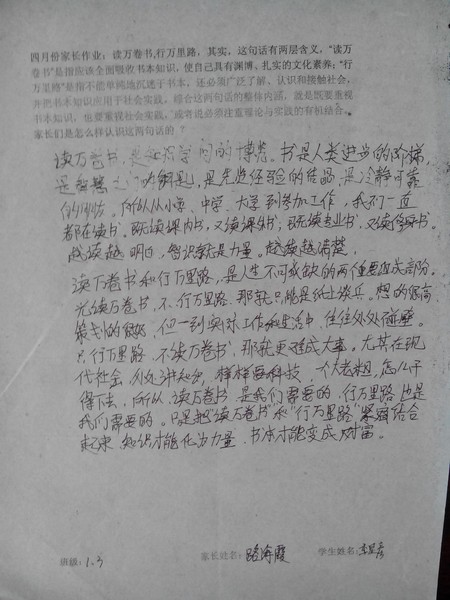 四月份家长作业：读万卷书,行万里路，其实，这句话有两层含义，“读万
卷书”是指应该全面吸收书本知识，使自己具有渊博、扎实的文化素养；“行
万里路”是指不能单纯地沉迷于书本，还必须广泛了解、认识和接触社会，
并把书本知识应用于社会实践，综合这两句话的整体内涵，就是既要重视
书本知识，也要重视社会实践，或者说必须注意理论与实践的有机结合。
家长们是怎么样认识这两句话的
读万卷书，是知识学问的博览。书是人类进步的阶梯，
是智慧之门的钥匙，是先贤经验的结晶，是冷静可靠
的 所以从小学、中学、大学到参加工作，我们一直
都在读书。既读课内书，又读课外书；既读专业书，又读修身书
越读越明白，知识就是力量。越读越清楚。
读万卷书和行万里路，是人生不可或缺的两个重要组成部分。
光读万卷书，不行万里路，那就只能是纸上谈兵。想的很高
策划的很好，但一到实际工作和生活中，往往处处碰壁。
只行万里路，不读万卷书，那就更难成大事。尤其在现
代社会，处处讲知识，样样要科技，个大老粗，怎么干
得下去，所以，读万卷书，是我们需要的，行万里路也是
我们需要的。只是把“读万卷书”和“行万里路”紧密结合
起来，知识才能化为力量，书本才能变成财富。
班级：1.3 家长姓名：路海霞 学生姓名：